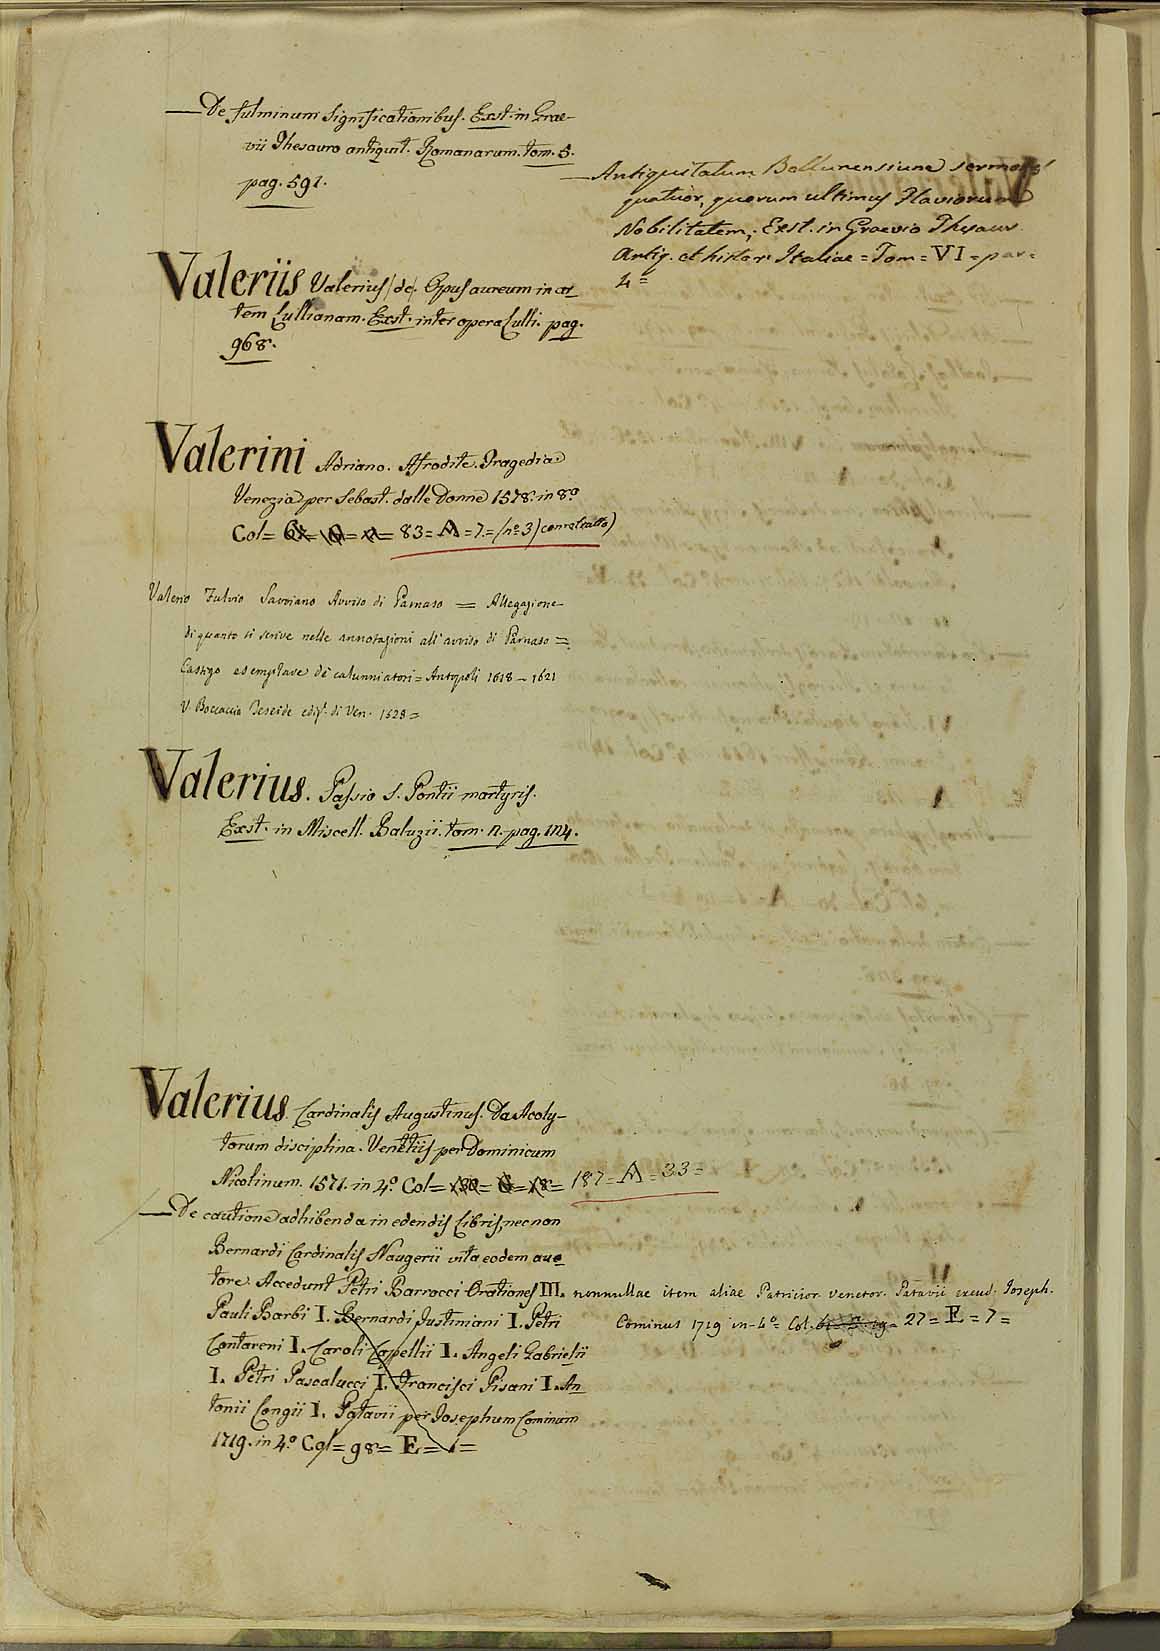 — De fulminum significationibus. Exst. in Grae-
vii Thesauro antiquit. Romanarum. tom. 5.
pag. 591.
— Antiquitatum Bellunensium sermones
quatuor, quorum ultimus Flaviorum
Nobilitatem; Exst. in Graevio Thesaur.
Antiq. et histor. Italiae = Tom = VI = par =
4 =
Valeriis Valerius (de). Opus aureum in ar-
tem Lullianam. Exst. inter opera Lulli. pag.
968.
Valerini Adriano. Afrodite. Tragedia
Venezia per Sebast. dalle Donne 1578. in 8.º
Col = 83 = A = 7. = (nº 3)
Valerio Fulvio Savoiano Avviso di Parnaso = Allegazione
di quanto si scrive nelle annotazioni all' avviso di Parnaso =
Castigo esemplare de' calunniatori = Antopoli 1618 - 1621
V. Boccaccio Teseide ediz. di Ven. 1528 =
Valerius. Passio S. Pontii martyris.
Exst. in Miscell. Baluzii. tom. 2. pag. 124.
Valerius Cardinalis Augustinus. De Acoly-
torum disciplina. Venetiis per Dominicum
Nicolinum. 1571. in 4.º Col = 187 = A = 33 =
— De cautione adhibenda in edendis libris, nec non
Bernardi Cardinalis Naugerii vita eodem auc-
tore. Accedunt Petri Barrocci Orationes III. nonnullae item aliae Patricior. Venetor. Patavii excud. Joseph.
Cominus 1719 in-4º = Col. 27 = E = 7 =
Pauli Barbi I. Bernardi Justiniani I. Petri
Contareni I. Caroli Capellii I. Angeli Gabrielii
I. Petri Pascalucci I. Francisci Pisani I. An-
tonii Longii I. Patavii per Josephum Cominum
1719. in 4.º Col = 98 = E = 1 =